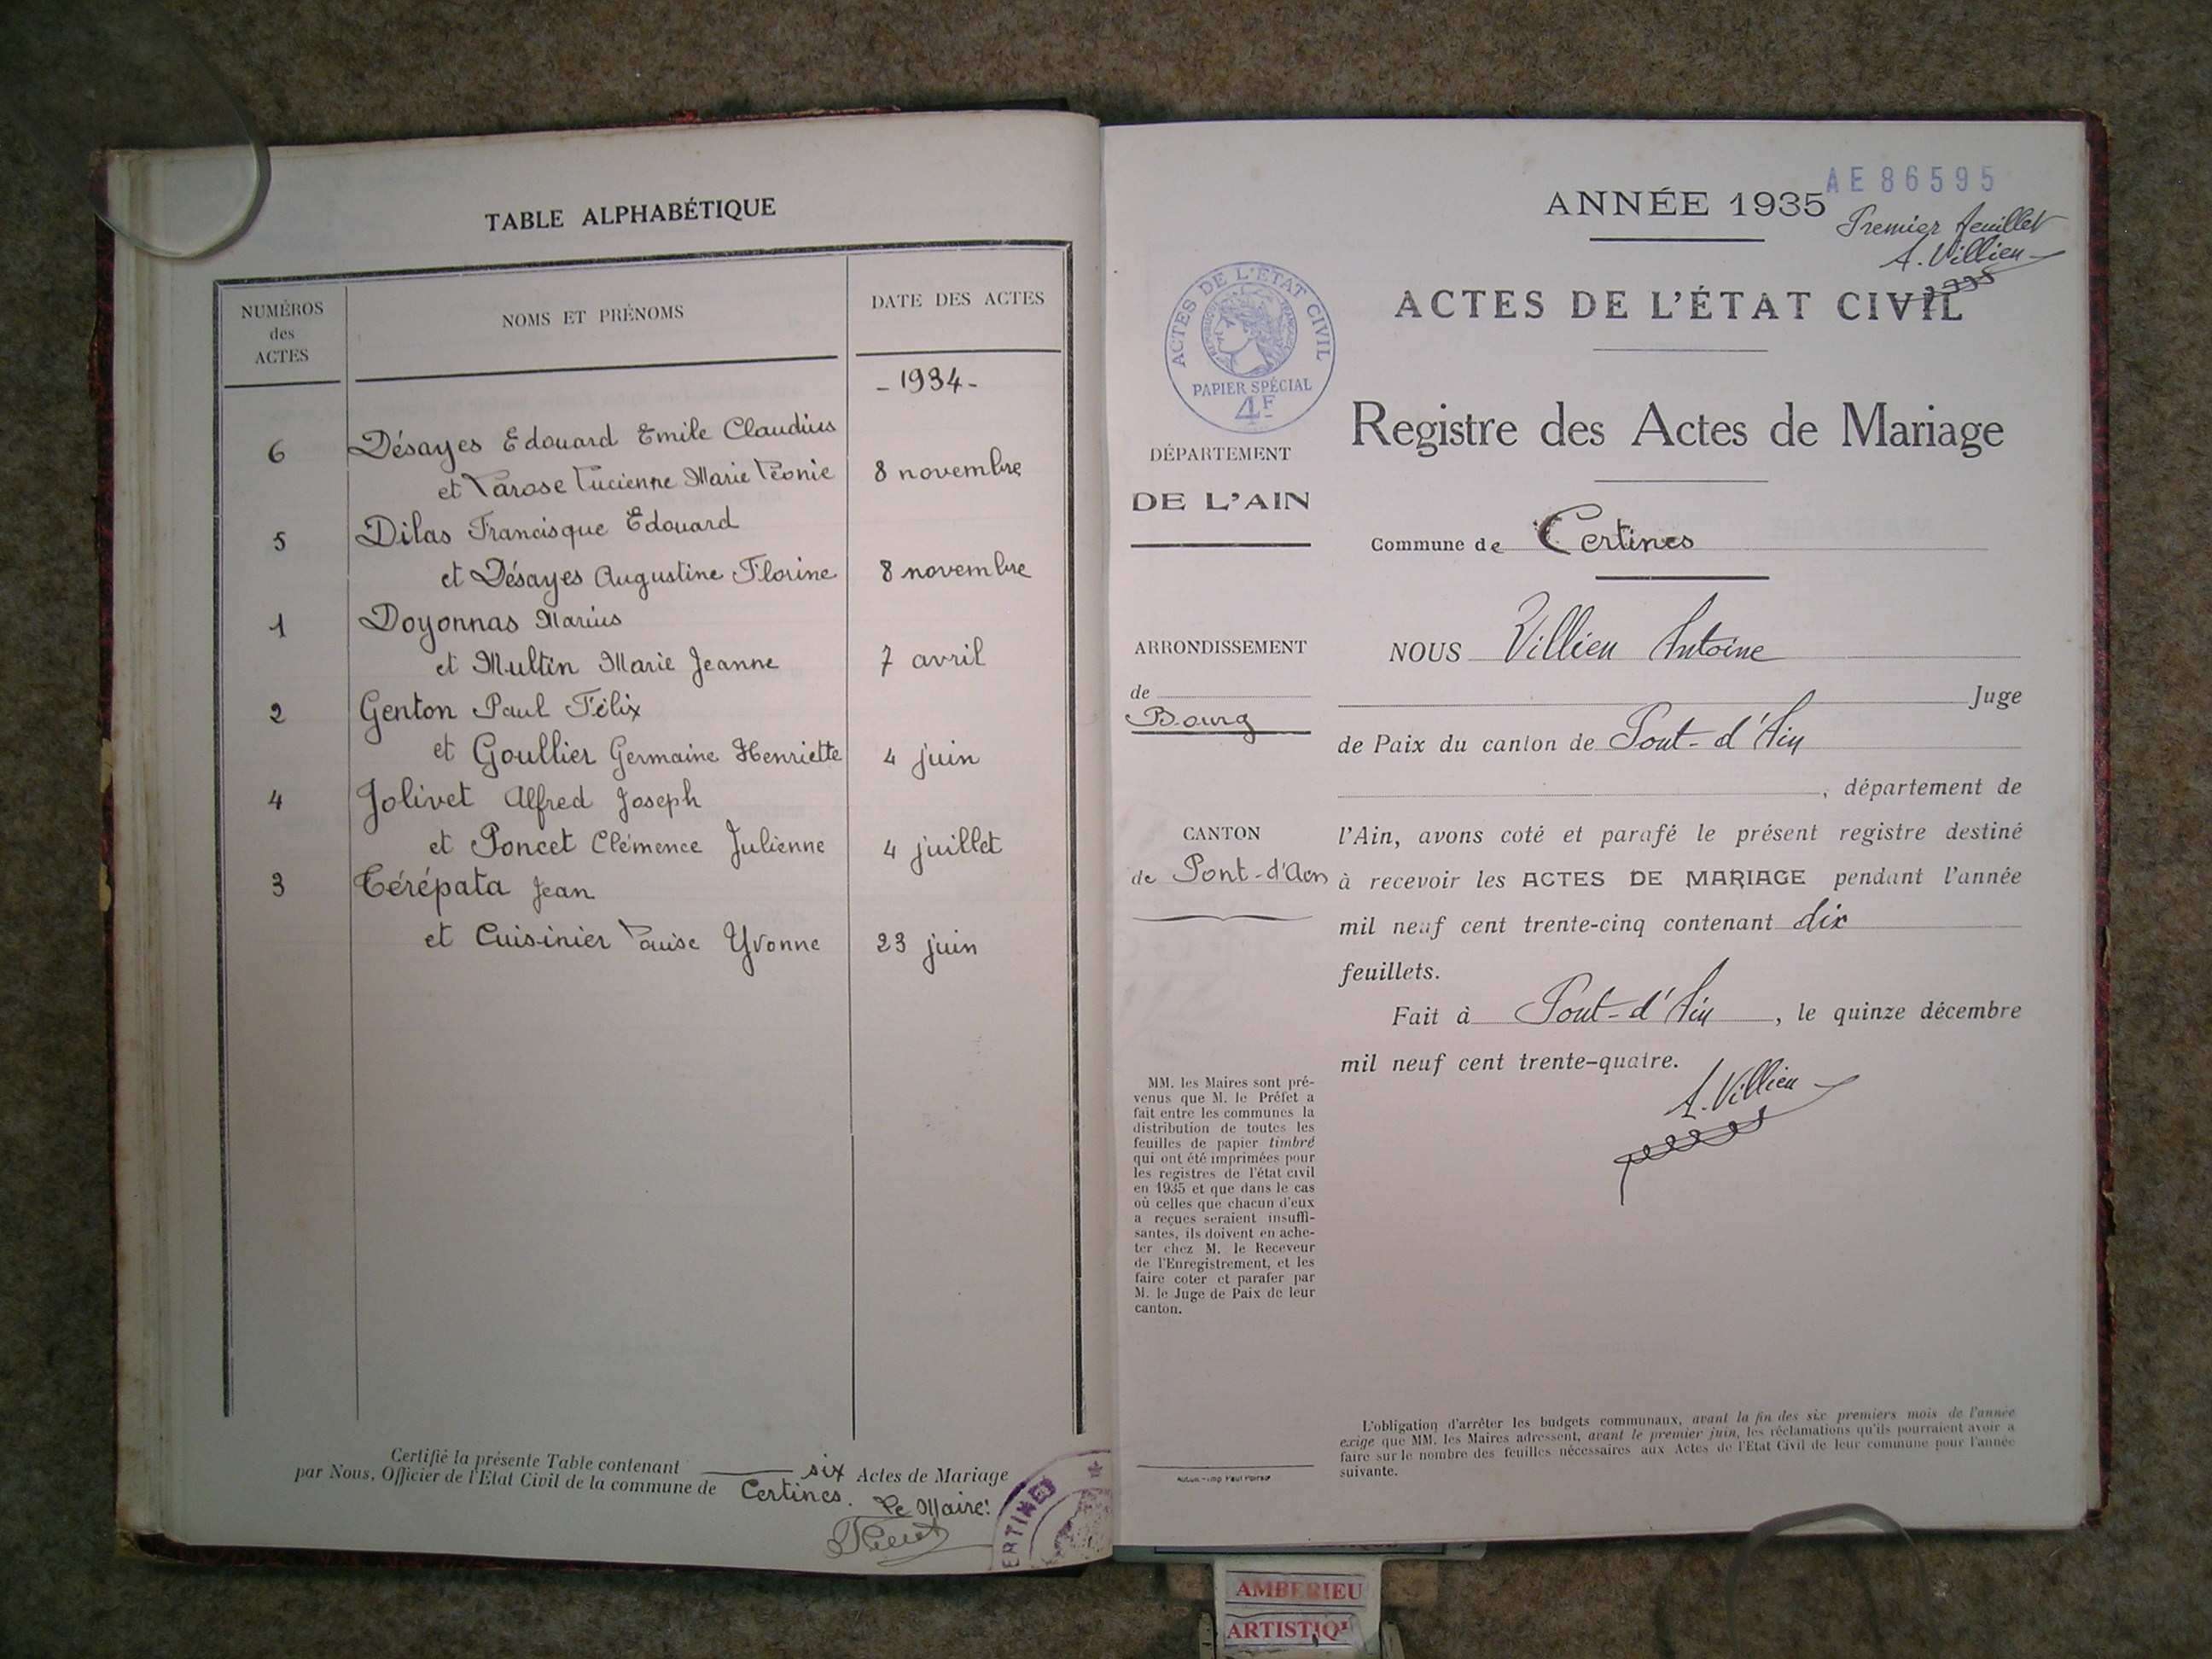 TABLE ALPHABÉTIQUE
NUMÉROS des ACTES
NOMS ET PRÉNOMS
DATE DES ACTES
- 1934 -
6 Désayes Edouard Emile Claudius
et Larose Lucienne Marie Léonie 8 novembre
5 Dilas Francisque Edouard
et Désayes Augustine Florine 8 novembre
1 Doyonnas Marius
et Multin Marie Jeanne 7 avril
2 Genton Paul Félix
et Goullier Germaine Henriette 4 juin
4 Jolivet Alfred Joseph
et Poncet Clémence Julienne 4 juillet
3 Cérépata Jean
et Cuisinier Louise Yvonne 23 juin
Certifié la présente Table contenant six Actes de Mariage
par Nous, Officier de l'Etat Civil de la commune de Certines. Le Maire:
ERTINES
AE86595
ANNÉE 1935
Premier feuillet
A. Villien
ACTES DE L'ÉTAT CIVIL
RÉPUBLIQUE FRANÇAISE
PAPIER SPÉCIAL
4F
ACTES DE L'ÉTAT CIVIL
Registre des Actes de Mariage
Commune de Certines
DÉPARTEMENT
DE L'AIN
ARRONDISSEMENT
de
Bourg
CANTON
de Pont-d'Ain
MM. les Maires sont pré-
venus que M. le Préfet a
fait entre les communes la
distribution de toutes les
feuilles de papier timbré
qui ont été imprimées pour
les registres de l'état civil
en 1935 et que dans le cas
où celles que chacun d'eux
a reçues seraient insuffi-
santes, ils doivent en ache-
ter chez M. le Receveur
de l'Enregistrement, et les
faire coter et parafer par
M. le Juge de Paix de leur
canton.
NOUS Villien Antoine
Juge
de Paix du canton de Pont-d'Ain
, département de
l'Ain, avons coté et parafé le présent registre destiné
à recevoir les ACTES DE MARIAGE pendant l'année
mil neuf cent trente-cinq contenant dix
feuillets.
Fait à Pont-d'Ain, le quinze décembre
mil neuf cent trente-quatre.
A. Villien
L'obligation d'arrêter les budgets communaux, avant la fin des six premiers mois de l'année
exige que MM. les Maires adressent, avant le premier juin, les réclamations qu'ils pourraient avoir a
faire sur le nombre des feuilles nécessaires aux Actes de l'Etat Civil de leur commune pour l'année
suivante.
AMBERIEU
ARTISTIQ